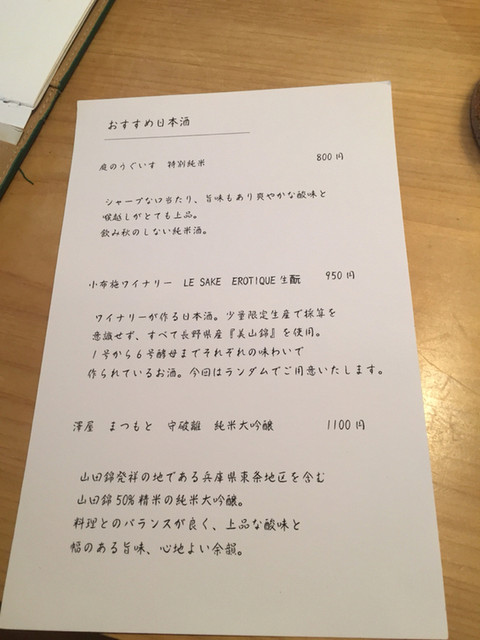 おすすめ日本酒
庭のうぐいす 特別純米 800円
シャープな口当たり、旨味もあり爽やかな酸味と
喉越しがとても上品。
飲み秋のしない純米酒。
小布施ワイナリー LE SAKE EROTIQUE 生酛 950円
ワイナリーが作る日本酒。少量限定生産で採算を
意識せず、すべて長野県産『美山錦』を使用。
1号から6号酵母までそれぞれの味わいで
作られているお酒。今回はランダムでご用意いたします。
澤屋 まつもと 守破離 純米大吟醸 1100円
山田錦発祥の地である兵庫県東条地区を含む
山田錦50%精米の純米大吟醸。
料理とのバランスが良く、上品な酸味と
幅のある旨味、心地よい余韻。